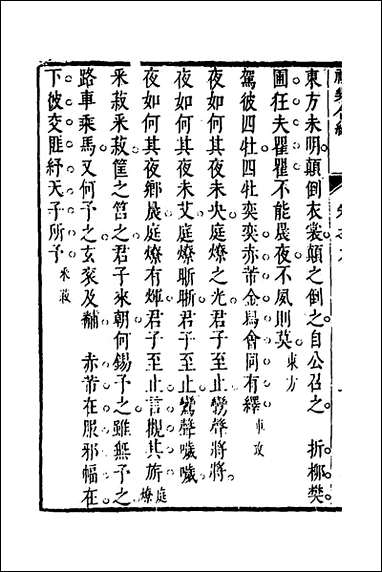 東方未明顛倒衣裳顛之倒之自公召之　折栁樊
圃狂夫瞿瞿不能晨夜不夙則莫東方
駕彼四牡四牡奕奕赤芾金舄會同有繹車攻
夜如何其夜未央庭燎之光君子至止鸞聲將將
夜如何其夜未艾庭燎晣晣君子至止鸞聲噦噦
夜如何其夜鄉晨庭燎有煇君子至止言觀其旂庭燎
采菽采菽筐之筥之君子來朝何錫予之雖無予之
路車乘馬又何予之玄衮及黼　赤芾在股邪幅在
下彼交匪紓天子所予采菽